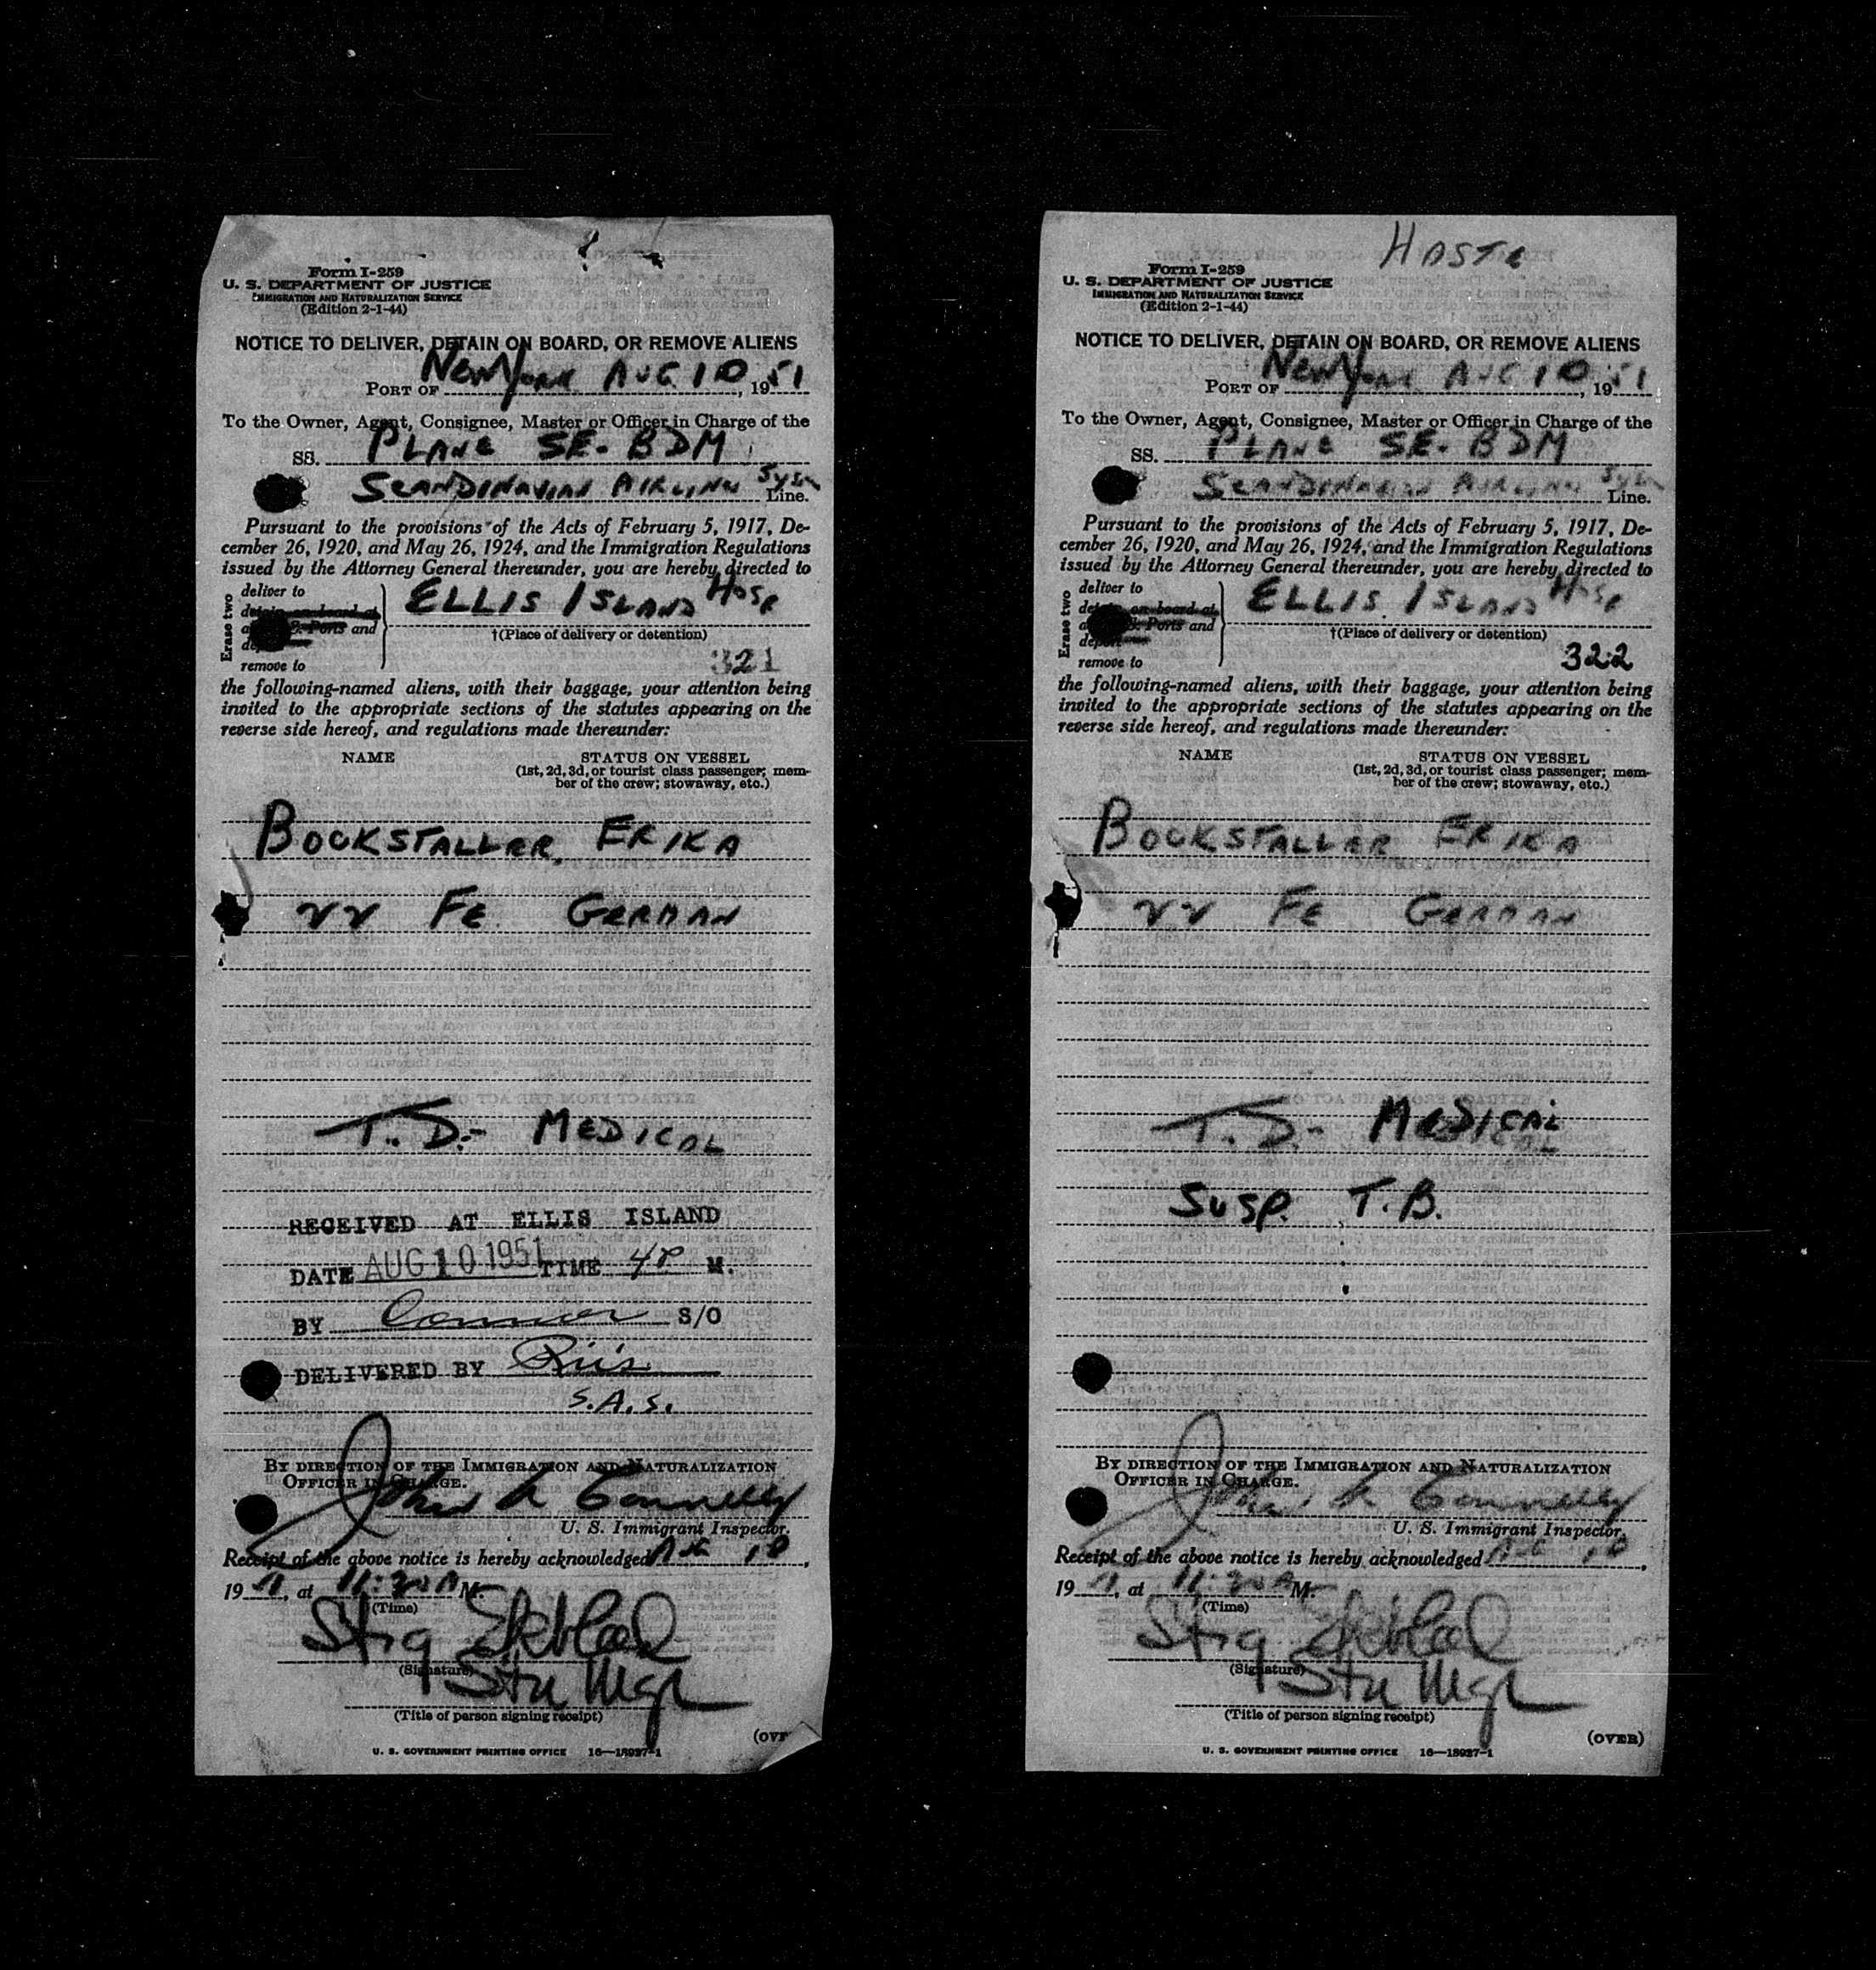 Form I-259
U. S. DEPARTMENT OF JUSTICE
IMMIGRATION AND NATURALIZATION SERVICE
(Edition 2-1-44)
NOTICE TO DELIVER, DETAIN ON BOARD, OR REMOVE ALIENS
PORT OF New York AUG 10, 1951
To the Owner, Agent, Consignee, Master or Officer in Charge of the
SS. PLANE SE-BDM
SCANDINAVIAN AIRLINES Line.
Pursuant to the provisions of the Acts of February 5, 1917, De-
cember 26, 1920, and May 26, 1924, and the Immigration Regulations
issued by the Attorney General thereunder, you are hereby directed to
Erase two
deliver to
detain on board at
Ports and
remove to
ELLIS ISLAND HOSP
†(Place of delivery or detention)
321
the following-named aliens, with their baggage, your attention being
invited to the appropriate sections of the statutes appearing on the
reverse side hereof, and regulations made thereunder:
NAME STATUS ON VESSEL
(1st, 2d, 3d, or tourist class passenger; mem-
ber of the crew; stowaway, etc.)
BOOKSTALLER, ERIKA
22 FE GERMAN
T.D.- MEDICAL
RECEIVED AT ELLIS ISLAND
DATE AUG 10 1951 TIME 4P M.
BY Connor S/O
DELIVERED BY Riis
S.A.S.
BY DIRECTION OF THE IMMIGRATION AND NATURALIZATION
OFFICER IN CHARGE.
John A Connelly
U. S. Immigrant Inspector.
Receipt of the above notice is hereby acknowledged Aug 10,
1951, at 11:20 A M.
(Time)
Stig Ekblad
(Signature)
Sta Mgr
(Title of person signing receipt)
(OVE
U. S. GOVERNMENT PRINTING OFFICE 16—18927-1
HOSTE
Form I-259
U. S. DEPARTMENT OF JUSTICE
IMMIGRATION AND NATURALIZATION SERVICE
(Edition 2-1-44)
NOTICE TO DELIVER, DETAIN ON BOARD, OR REMOVE ALIENS
PORT OF New York AUG 10, 1951
To the Owner, Agent, Consignee, Master or Officer in Charge of the
SS. PLANE SE-BDM
SCANDINAVIAN AIRLINES Line.
Pursuant to the provisions of the Acts of February 5, 1917, De-
cember 26, 1920, and May 26, 1924, and the Immigration Regulations
issued by the Attorney General thereunder, you are hereby directed to
Erase two
deliver to
detain on board at
Ports and
deport
remove to
ELLIS ISLAND HOSP
†(Place of delivery or detention)
322
the following-named aliens, with their baggage, your attention being
invited to the appropriate sections of the statutes appearing on the
reverse side hereof, and regulations made thereunder:
NAME STATUS ON VESSEL
(1st, 2d, 3d, or tourist class passenger; mem-
ber of the crew; stowaway, etc.)
BOOKSTALLER ERIKA
22 FE GERMAN
T.D.- MEDICAL
SUSP. T.B.
BY DIRECTION OF THE IMMIGRATION AND NATURALIZATION
OFFICER IN CHARGE.
John A Connelly
U. S. Immigrant Inspector.
Receipt of the above notice is hereby acknowledged Aug 10,
1951, at 11:20 A M.
(Time)
Stig Ekblad
(Signature)
Sta Mgr
(Title of person signing receipt)
(OVER)
U. S. GOVERNMENT PRINTING OFFICE 16—18927-1